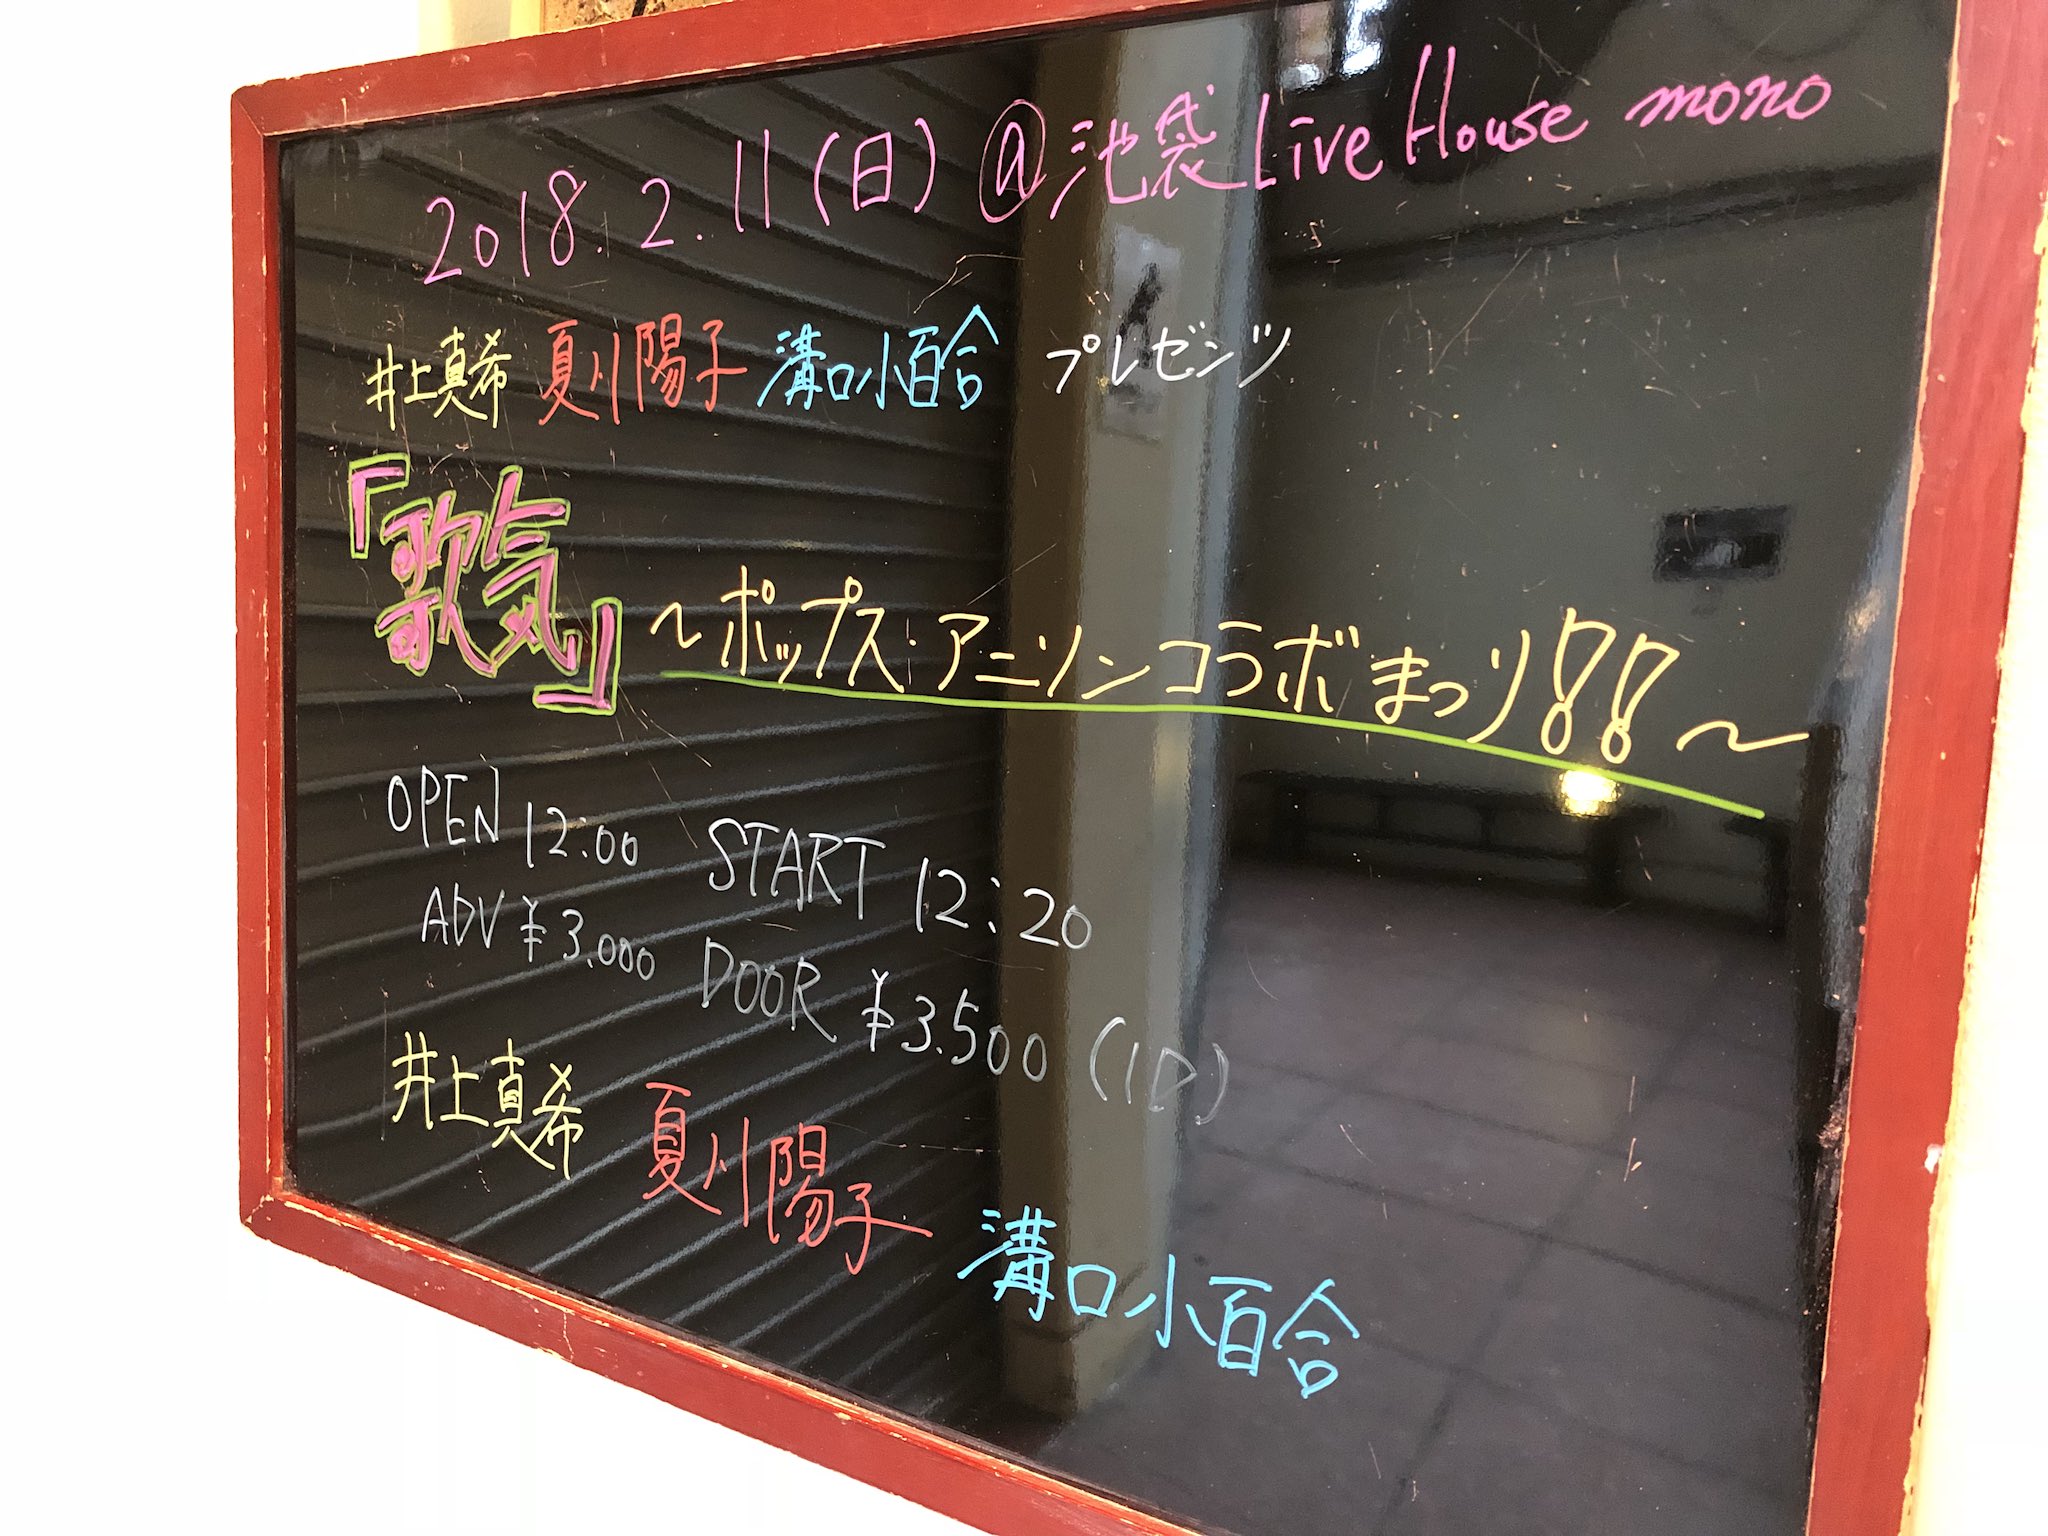 2018.2.11(日)@池袋Live House mono
井上真希 夏川陽子 溝口小百合 プレゼンツ
『歌気』～ポップス・アニソンコラボまつり!!～
OPEN 12:00 START 12:20
ADV ¥3.000 DOOR ¥3.500 (1D)
井上真希 夏川陽子 溝口小百合